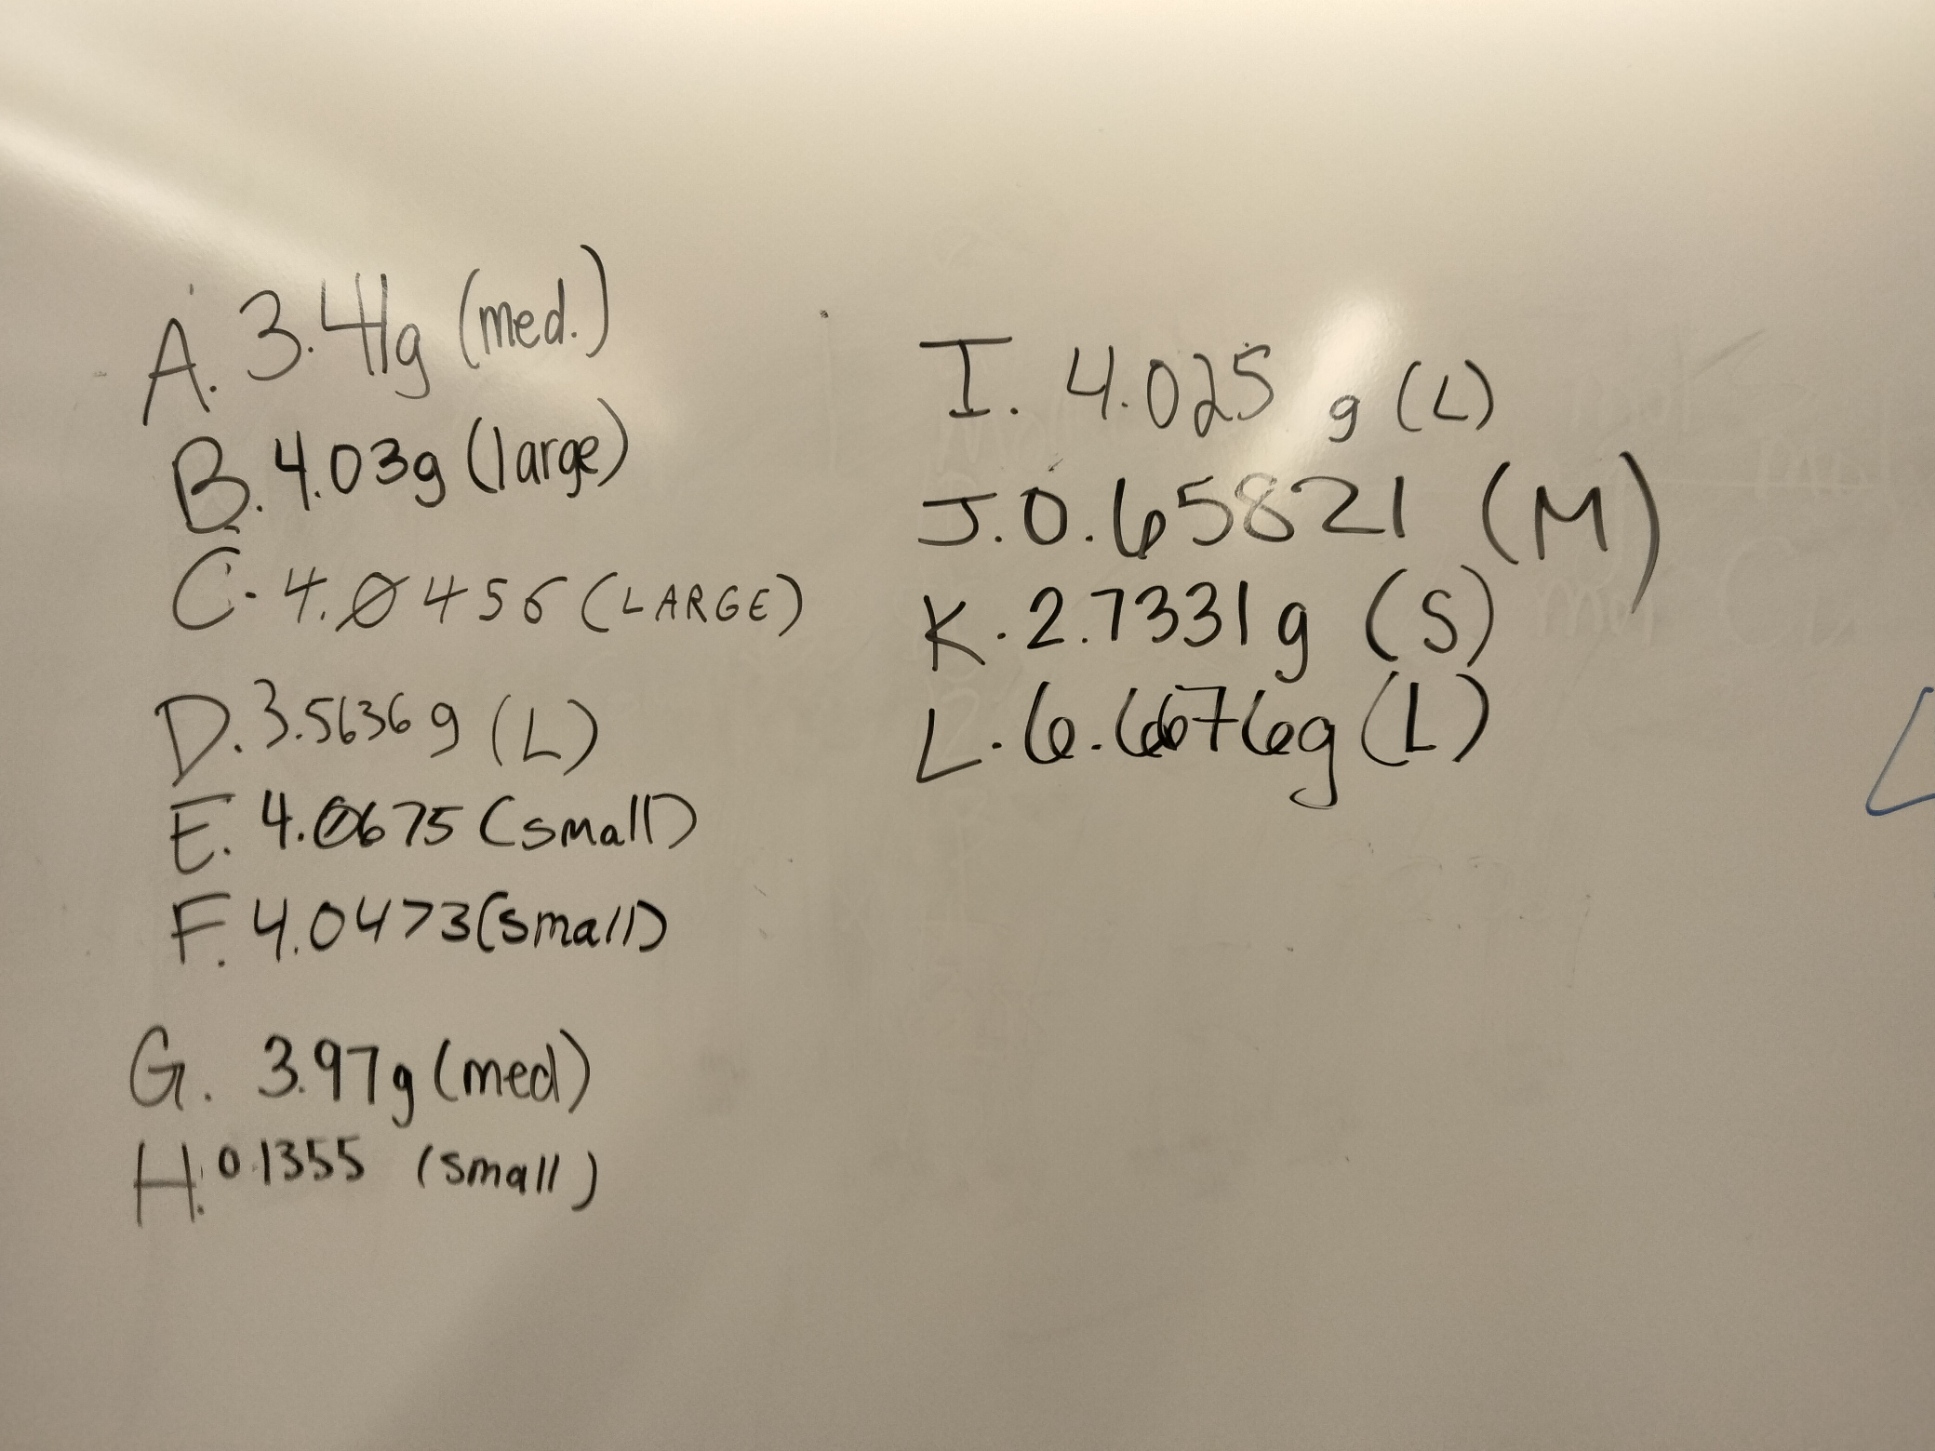 A. 3.41g (med.)
B. 4.03g (large)
C. 4.0456 (LARGE)
D. 3.5636g (L)
E. 4.0675 (small)
F. 4.0473 (small)
G. 3.97g (med)
H. 0.1355 (small)
I. 4.025 g (L)
J. 0.65821 (M)
K. 2.7331g (S)
L. 6.6676g (L)